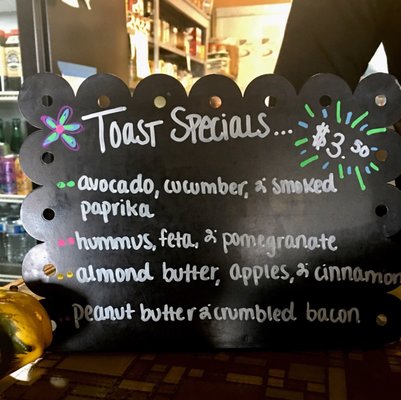 Toast Specials...
$3.50
avocado, cucumber, & smoked
paprika
hummus, feta, & pomegranate
almond butter, apples, & cinnamon
peanut butter & crumbled bacon